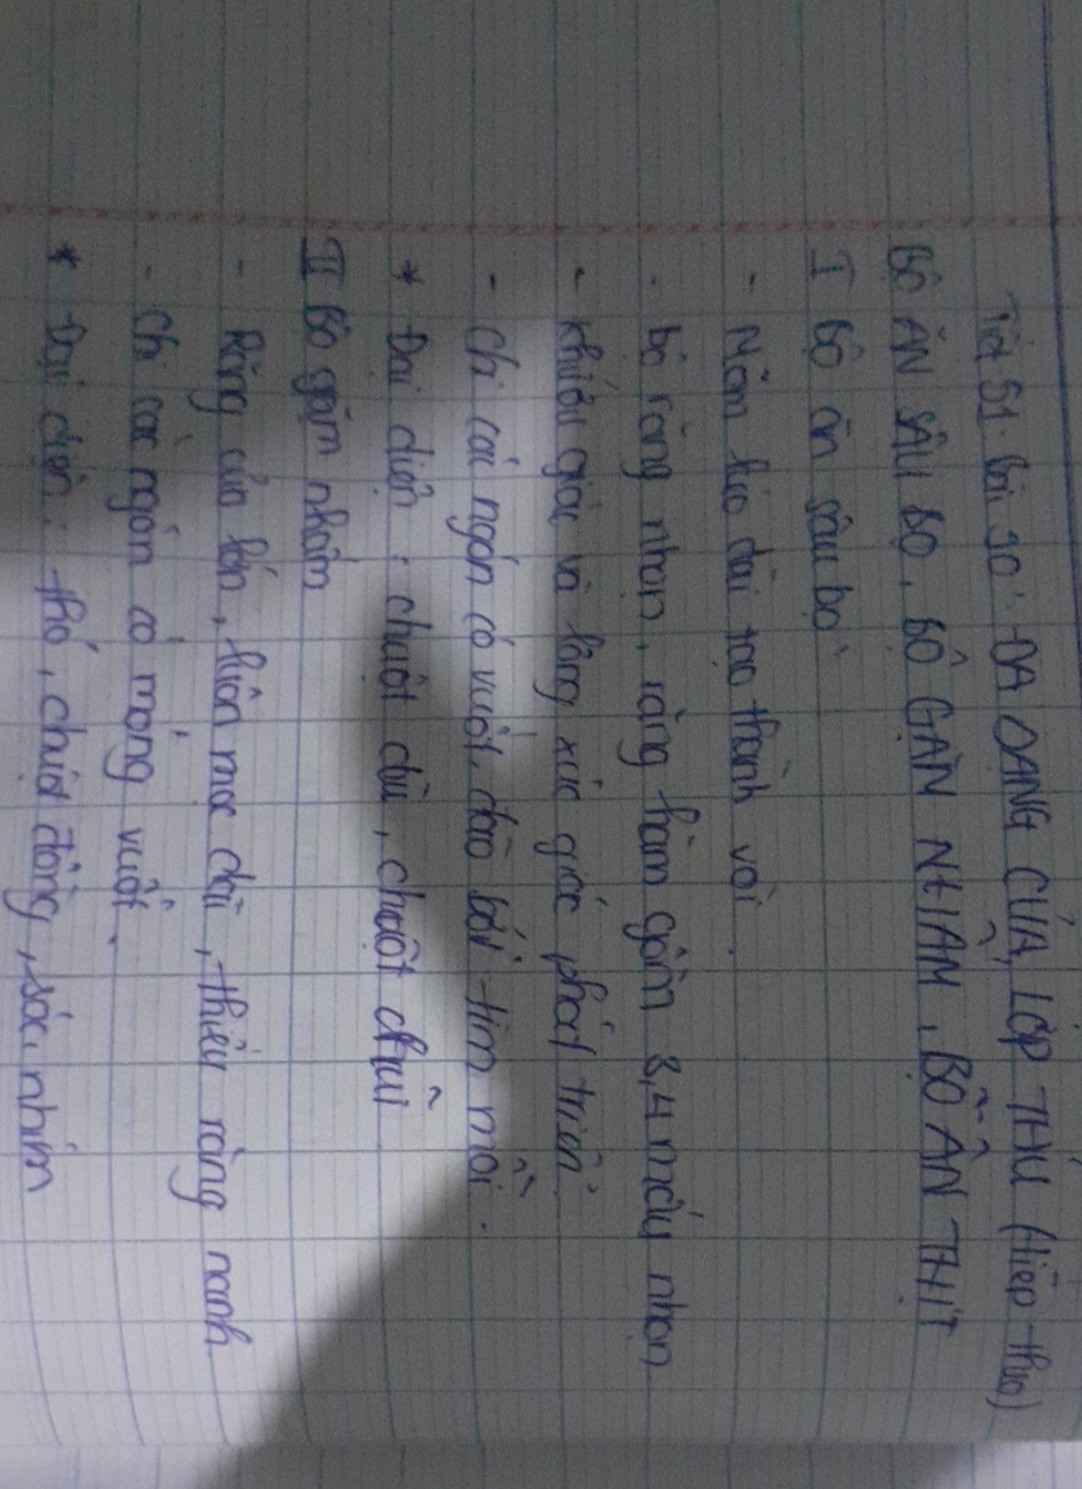 Tiết 51. Bài 50: ĐA DẠNG CỦA LỚP THÚ (tiếp theo)
BỘ ĂN SÂU BỌ, BỘ GẶM NHẤM, BỘ ĂN THỊT
I Bộ ăn sâu bọ
- Mõm kéo dài tạo thành vòi.
- bộ răng nhọn, răng hàm gồm 3,4 mấu nhọn
- khứu giác và lông xúc giác phát triển
- Chi có ngón có vuốt, đào bới tìm mồi.
* Đại diện: chuột chù, chuột chũi
II Bộ gặm nhấm
- Răng cửa lớn, luôn mọc dài, thiếu răng nanh
- Chi các ngón có móng vuốt.
* Đại diện: thỏ, chuột đồng, sóc, nhím